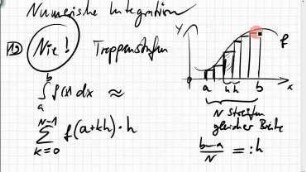 Numerische Integration
Nie! Treppenstufen
b
∫ f(x) dx ≈
a
N-1
∑ f(a+kh)·h
k=0
y
f
a h h b x
N Streifen
gleicher Breite
b-a
N =: h